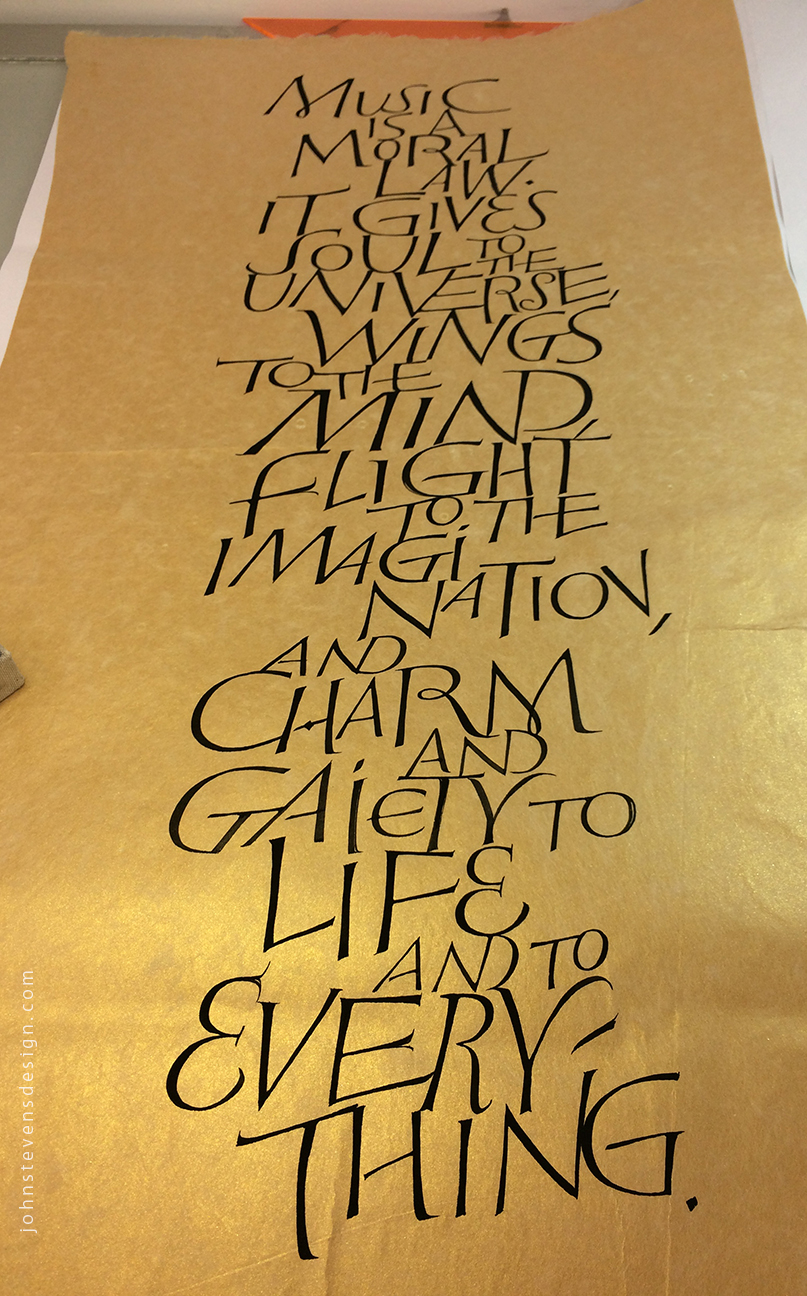 MUSIC
IS A
MORAL
LAW.
IT GIVES
SOUL TO
THE
UNIVERSE,
WINGS
TO THE
MIND,
FLIGHT
TO THE
IMAGI
NATION,
AND
CHARM
AND
GAIETY TO
LIFE
AND TO
EVERY-
THING.
johnstevensdesign.com